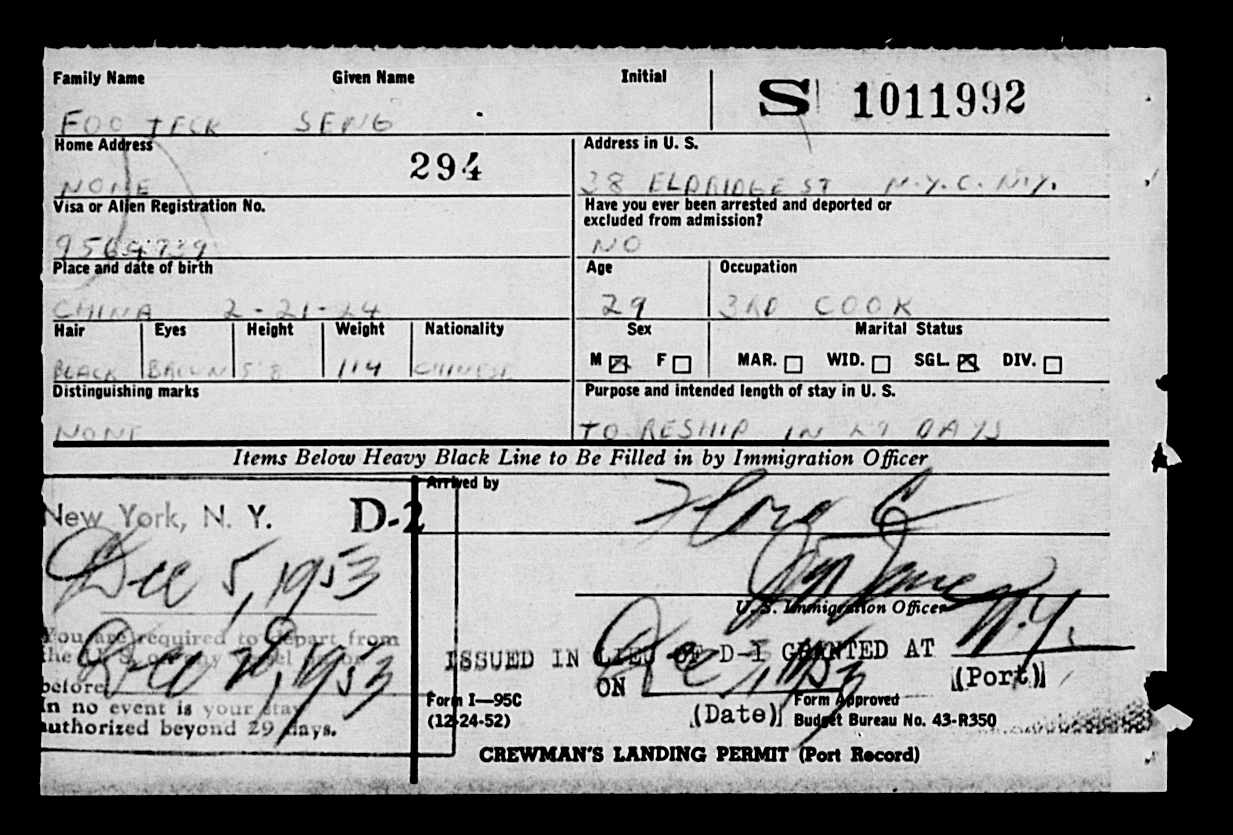 Family Name Given Name Initial
S 1011992
FOO TECK SENG
Home Address 294 Address in U. S.
NONE 38 ELDRIDGE ST N.Y.C. N.Y.
Visa or Alien Registration No. Have you ever been arrested and deported or
excluded from admission?
NO
Place and date of birth Age Occupation
CHINA 2-21-24 29 3RD COOK
Hair Eyes Height Weight Nationality Sex Marital Status
M F MAR. WID. SGL. DIV.
BLACK BROWN 5'8 114 CHINESE
Distinguishing marks Purpose and intended length of stay in U. S.
NONE TO RESHIP IN 29 DAYS
Items Below Heavy Black Line to Be Filled in by Immigration Officer
Arrived by
New York, N. Y. D-2
Dec 5, 1953
U. S. Immigration Officer
You are required to depart from
the U S on any vessel on or
before
Dec 1953
In no event is your stay
authorized beyond 29 days.
ISSUED IN LIEU OF D-I GRANTED AT N.Y.
(Port)
ON Dec 1953
(Date)
Form I—95C
(12-24-52)
Form Approved
Budget Bureau No. 43-R350
CREWMAN'S LANDING PERMIT (Port Record)